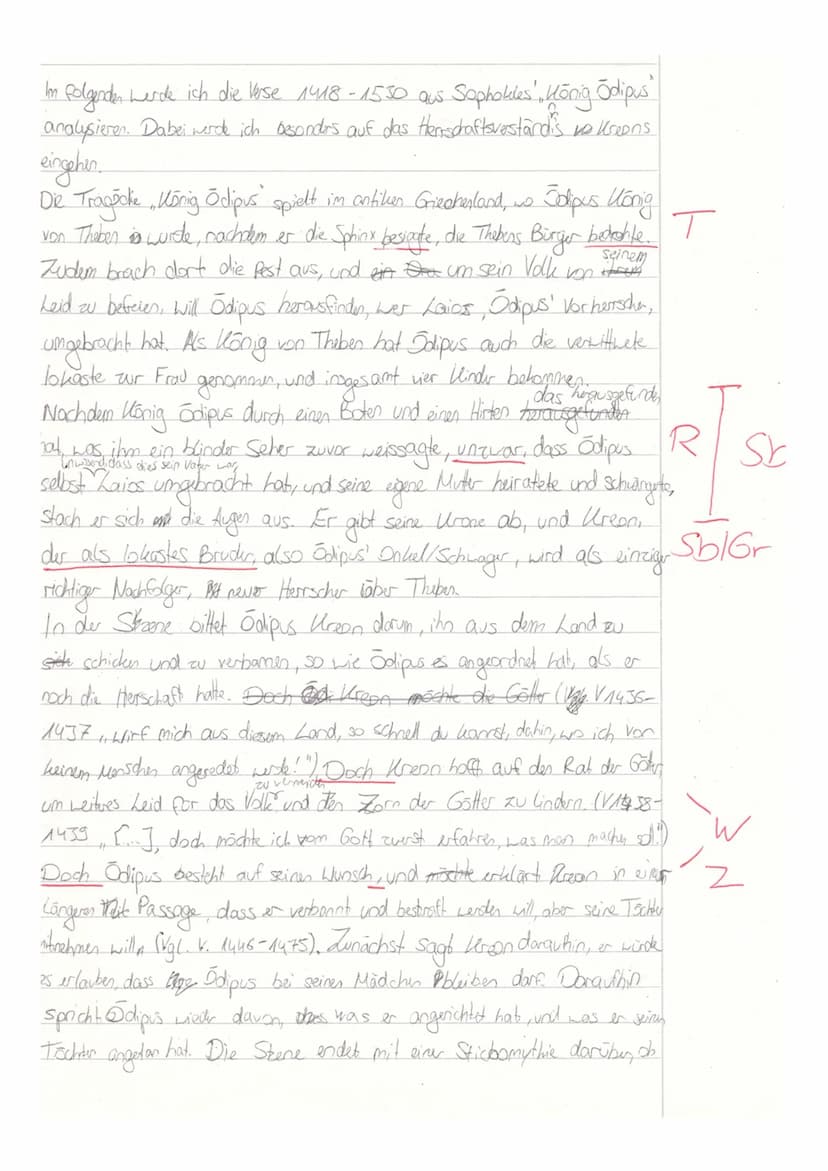 Im Folgenden werde ich die Verse 1418-1530 aus Sophokles' „König Ödipus"
analysieren. Dabei werde ich besonders auf das Herrschaftsverständnis Kreons
eingehen.
Die Tragödie „König Ödipus" spielt im antiken Griechenland, wo Ödipus König
von Theben wurde, nachdem er die Sphinx besiegte, die Thebens Bürger bedrohte. T
Zudem brach dort die Pest aus, und um sein Volk von seinem
Leid zu befreien, will Ödipus herausfinden, wer Laios, Ödipus' Vorherrscher,
umgebracht hat. Als König von Theben hat Ödipus auch die verwittwete
Iokaste zur Frau genommen, und insgesamt vier Kinder bekommen.
Nachdem König Ödipus durch einen Boten und einen Hirten das herausgefunden
hat, was ihm ein blinder Seher zuvor weissagte, unzwar, dass Ödipus R
selbst Laios umgebracht hat, unwissend, dass dies sein Vater war, und seine eigene Mutter heiratete und schwängerte, Sb
stach er sich die Augen aus. Er gibt seine Krone ab, und Kreon,
der als Iokastes Bruder, also Ödipus' Onkel/Schwager, wird als einziger Sb/Gr
richtiger Nachfolger, neuer Herrscher über Theben.
In der Szene bittet Ödipus Kreon darum, ihn aus dem Land zu
schicken und zu verbannen, so wie Ödipus es angeordnet hat, als er
noch die Herrschaft hatte. (Vgl. V1436-
1437 „Wirf mich aus diesem Land, so schnell du kannst, dahin, wo ich von
keinem Menschen angeredet werde!") Doch Kreon hofft auf den Rat der Götter,
um weitres Leid für das Volk zu vermeiden und den Zorn der Götter zu lindern. (V1438-
1439 „[...], doch möchte ich vom Gott zuerst erfahren, was man machen soll.") W
Doch Ödipus besteht auf seinen Wunsch, und erklärt Kreon in einer Z
längeren Passage, dass er verbannt und bestraft werden will, aber seine Töchter
mitnehmen will (Vgl. V. 1446-1475). Zunächst sagt Kreon daraufhin, er würde
es erlauben, dass Ödipus bei seinen Mädchen bleiben darf. Daraufhin
spricht Ödipus wieder davon, was er angerichtet hat, und was er seinen
Töchter angetan hat. Die Szene endet mit einer Stichomythie darüber, ob